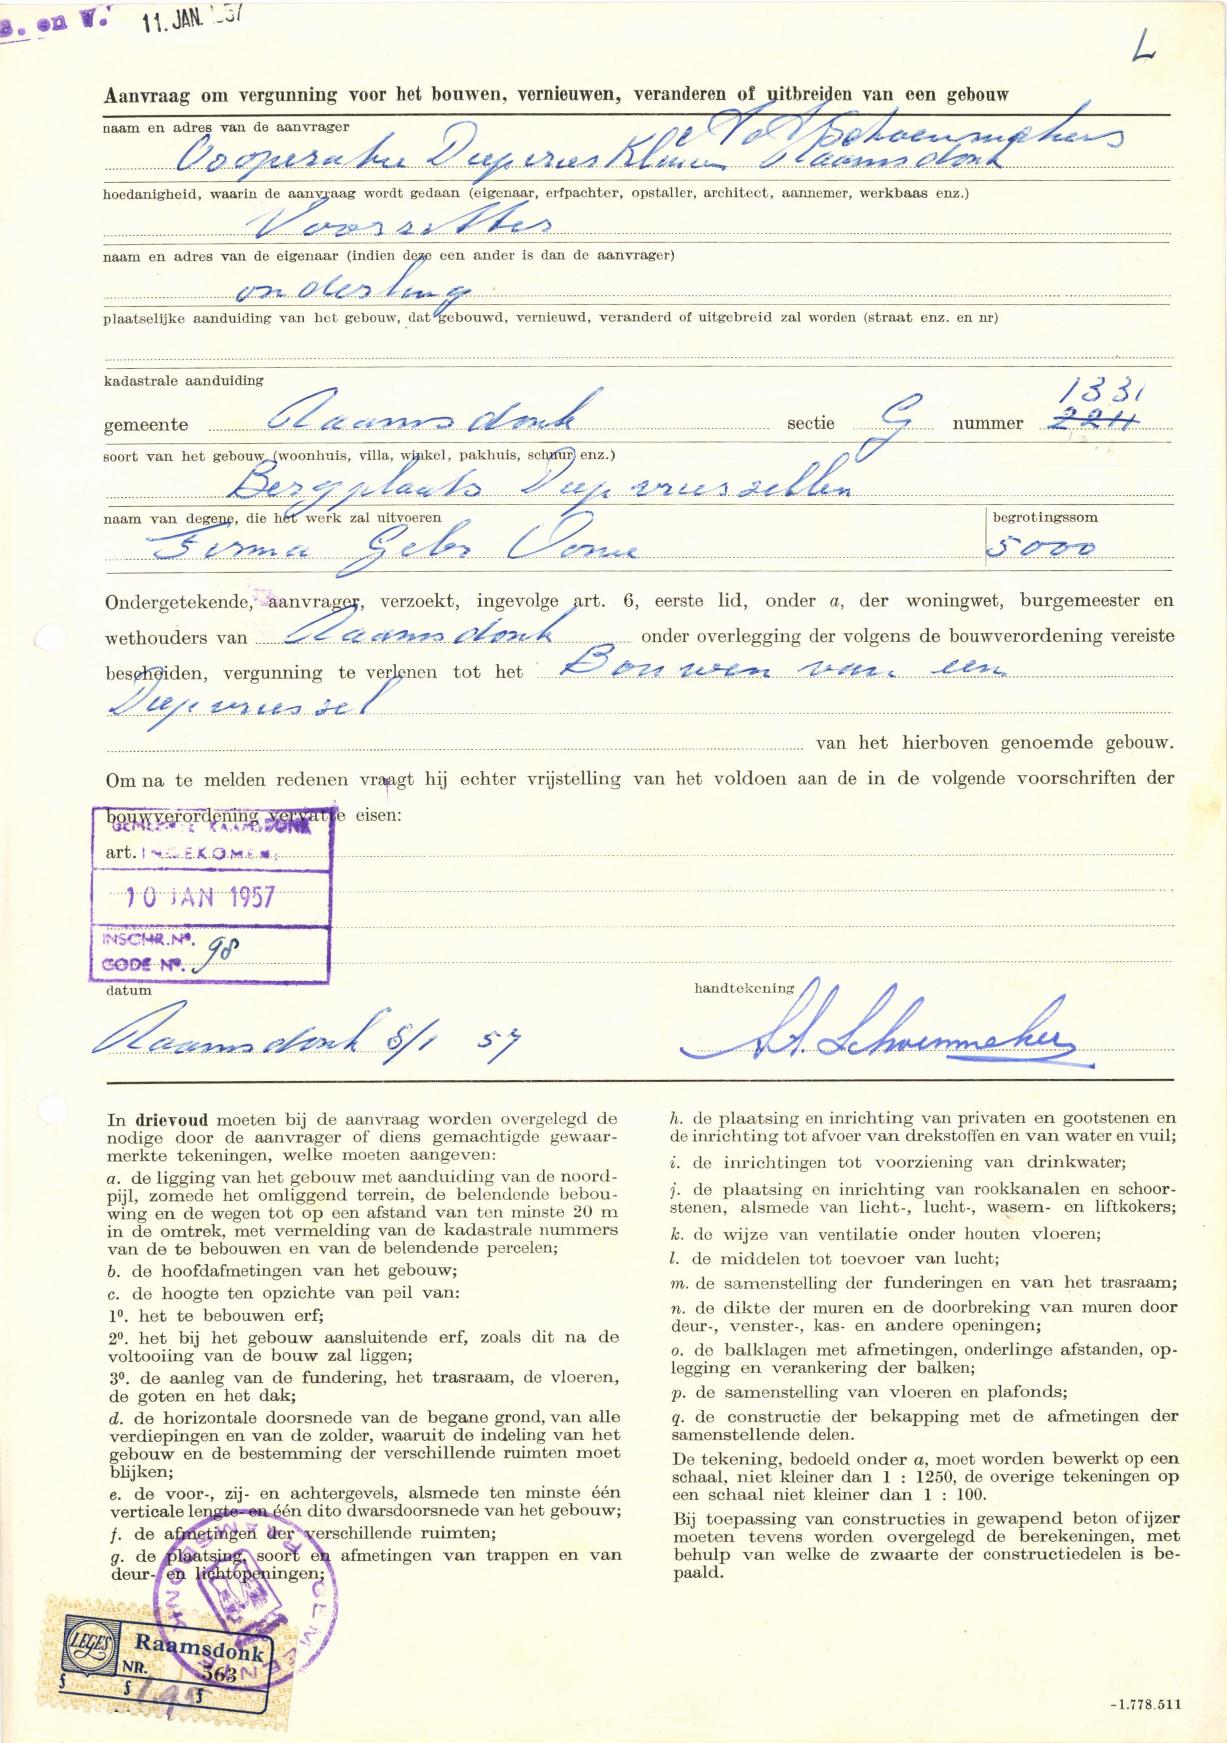 B. en W.
11. JAN. 1957
L
Aanvraag om vergunning voor het bouwen, vernieuwen, veranderen of uitbreiden van een gebouw
naam en adres van de aanvrager
Schoenmakers
Cooperatie Diepvries Kluis Raamsdonk
hoedanigheid, waarin de aanvraag wordt gedaan (eigenaar, erfpachter, opstaller, architect, aannemer, werkbaas enz.)
Voorzitter
naam en adres van de eigenaar (indien deze een ander is dan de aanvrager)
onderling
plaatselijke aanduiding van het gebouw, dat gebouwd, vernieuwd, veranderd of uitgebreid zal worden (straat enz. en nr)
kadastrale aanduiding
1331
gemeente Raamsdonk sectie G nummer 2211
soort van het gebouw (woonhuis, villa, winkel, pakhuis, schuur enz.)
Bergplaats Diepvriescellen
naam van degene, die het werk zal uitvoeren
begrotingssom
Firma Gebr 5000
Ondergetekende, aanvrager, verzoekt, ingevolge art. 6, eerste lid, onder a, der woningwet, burgemeester en
wethouders van Raamsdonk onder overlegging der volgens de bouwverordening vereiste
bescheiden, vergunning te verlenen tot het Bouwen van een
Diepvriescel
van het hierboven genoemde gebouw.
Om na te melden redenen vraagt hij echter vrijstelling van het voldoen aan de in de volgende voorschriften der
bouwverordening vervatte eisen:
GEMEENTE RAAMSDONK
art. INGEKOMEN:
10 JAN 1957
INSCHR. Nº. 98
CODE Nº.
datum
handtekening
Raamsdonk 8/1 57
Schoenmakers
In drievoud moeten bij de aanvraag worden overgelegd de
nodige door de aanvrager of diens gemachtigde gewaar-
merkte tekeningen, welke moeten aangeven:
a. de ligging van het gebouw met aanduiding van de noord-
pijl, zomede het omliggend terrein, de belendende bebou-
wing en de wegen tot op een afstand van ten minste 20 m
in de omtrek, met vermelding van de kadastrale nummers
van de te bebouwen en van de belendende percelen;
b. de hoofdafmetingen van het gebouw;
c. de hoogte ten opzichte van peil van:
1º. het te bebouwen erf;
2º. het bij het gebouw aansluitende erf, zoals dit na de
voltooiing van de bouw zal liggen;
3º. de aanleg van de fundering, het trasraam, de vloeren,
de goten en het dak;
d. de horizontale doorsnede van de begane grond, van alle
verdiepingen en van de zolder, waaruit de indeling van het
gebouw en de bestemming der verschillende ruimten moet
blijken;
e. de voor-, zij- en achtergevels, alsmede ten minste één
verticale lengte- en één dito dwarsdoorsnede van het gebouw;
f. de afmetingen der verschillende ruimten;
g. de plaatsing, soort en afmetingen van trappen en van
deur- en lichtopeningen;
h. de plaatsing en inrichting van privaten en gootstenen en
de inrichting tot afvoer van drekstoffen en van water en vuil;
i. de inrichtingen tot voorziening van drinkwater;
j. de plaatsing en inrichting van rookkanalen en schoor-
stenen, alsmede van licht-, lucht-, wasem- en liftkokers;
k. de wijze van ventilatie onder houten vloeren;
l. de middelen tot toevoer van lucht;
m. de samenstelling der funderingen en van het trasraam;
n. de dikte der muren en de doorbreking van muren door
deur-, venster-, kas- en andere openingen;
o. de balklagen met afmetingen, onderlinge afstanden, op-
legging en verankering der balken;
p. de samenstelling van vloeren en plafonds;
q. de constructie der bekapping met de afmetingen der
samenstellende delen.
De tekening, bedoeld onder a, moet worden bewerkt op een
schaal, niet kleiner dan 1 : 1250, de overige tekeningen op
een schaal niet kleiner dan 1 : 100.
Bij toepassing van constructies in gewapend beton of ijzer
moeten tevens worden overgelegd de berekeningen, met
behulp van welke de zwaarte der constructiedelen is be-
paald.
GEMEENTE RAAMSDONK
LEGES Raamsdonk
NR. 563
f f f
-1.778.511